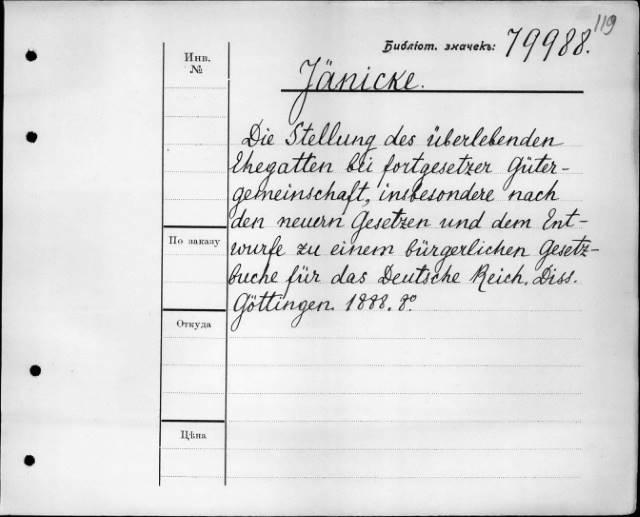 119
Библіот. значекъ: 79988.
Инв.
№
Jänicke.
Die Stellung des überlebenden
Ehegatten bei fortgesetzer Güter-
gemeinschaft, insbesondere nach
den neuern Gesetzen und dem Ent-
По заказу
wurfe zu einem bürgerlichen Gesetz-
buche für das Deutsche Reich. Diss.
Göttingen. 1888. 8º
Откуда
Цѣна